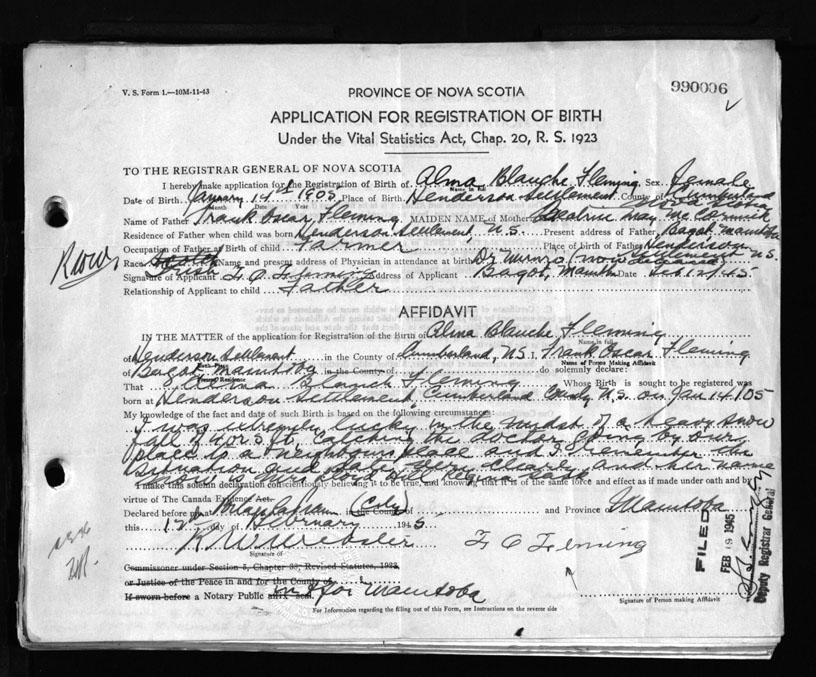 V. S. Form 1.—10M-11-43
PROVINCE OF NOVA SCOTIA
990006
APPLICATION FOR REGISTRATION OF BIRTH
Under the Vital Statistics Act, Chap. 20, R. S. 1923
TO THE REGISTRAR GENERAL OF NOVA SCOTIA
I hereby make application for the Registration of Birth of Alma Blanche Fleming Sex Female
Name in full
Date of Birth January 14th 1905 Place of Birth Henderson Settlement County of Cumberland
Month Date Year
Name of Father Frank Oscar Fleming MAIDEN NAME of Mother Beatrice May McCormick
Residence of Father when child was born Henderson Settlement, N.S. Present address of Father Bagot Manitoba
Occupation of Father at Birth of child Farmer Place of birth of Father Henderson
Race Irish Name and present address of Physician in attendance at birth Dr Munro (now deceased) Settlement N.S.
Signature of Applicant F. O. Fleming Address of Applicant Bagot, Manitoba Date Feb 12/45
Relationship of Applicant to child Father
AFFIDAVIT
IN THE MATTER of the application for Registration of the Birth of Alma Blanche Fleming
Name in full
of Henderson Settlement in the County of Cumberland, N.S. I Frank Oscar Fleming
Birth Place Name of Person Making Affidavit
of Bagot Manitoba in the County of do solemnly declare:
Present Residence
That Alma Blanch Fleming Whose Birth is sought to be registered was
born at Henderson Settlement, Cumberland County N.S. on Jan 14/05
My knowledge of the fact and date of such Birth is based on the following circumstances:
I was extremely lucky in the midst of a heavy snow
fall of 4 or 5 ft, catching the doctor going by our
place to a neighbours place and I remember the
situation and date very clearly and her name
I make this solemn declaration conscientiously believing it to be true, and knowing that it is of the same force and effect as if made under oath and by
virtue of The Canada Evidence Act.
Declared before me at in the County of and Province Manitoba
this 17th day of February 1945
K W Webster F O Fleming
Signature of
Commissioner under Section 5, Chapter 38, Revised Statutes, 1923,
or Justice of the Peace in and for the County of
If sworn before a Notary Public affix seal. in & for Manitoba
Signature of Person making Affidavit
For Information regarding the filling out of this Form, see Instructions on the reverse side
FILED
FEB 19 1945
Deputy Registrar General